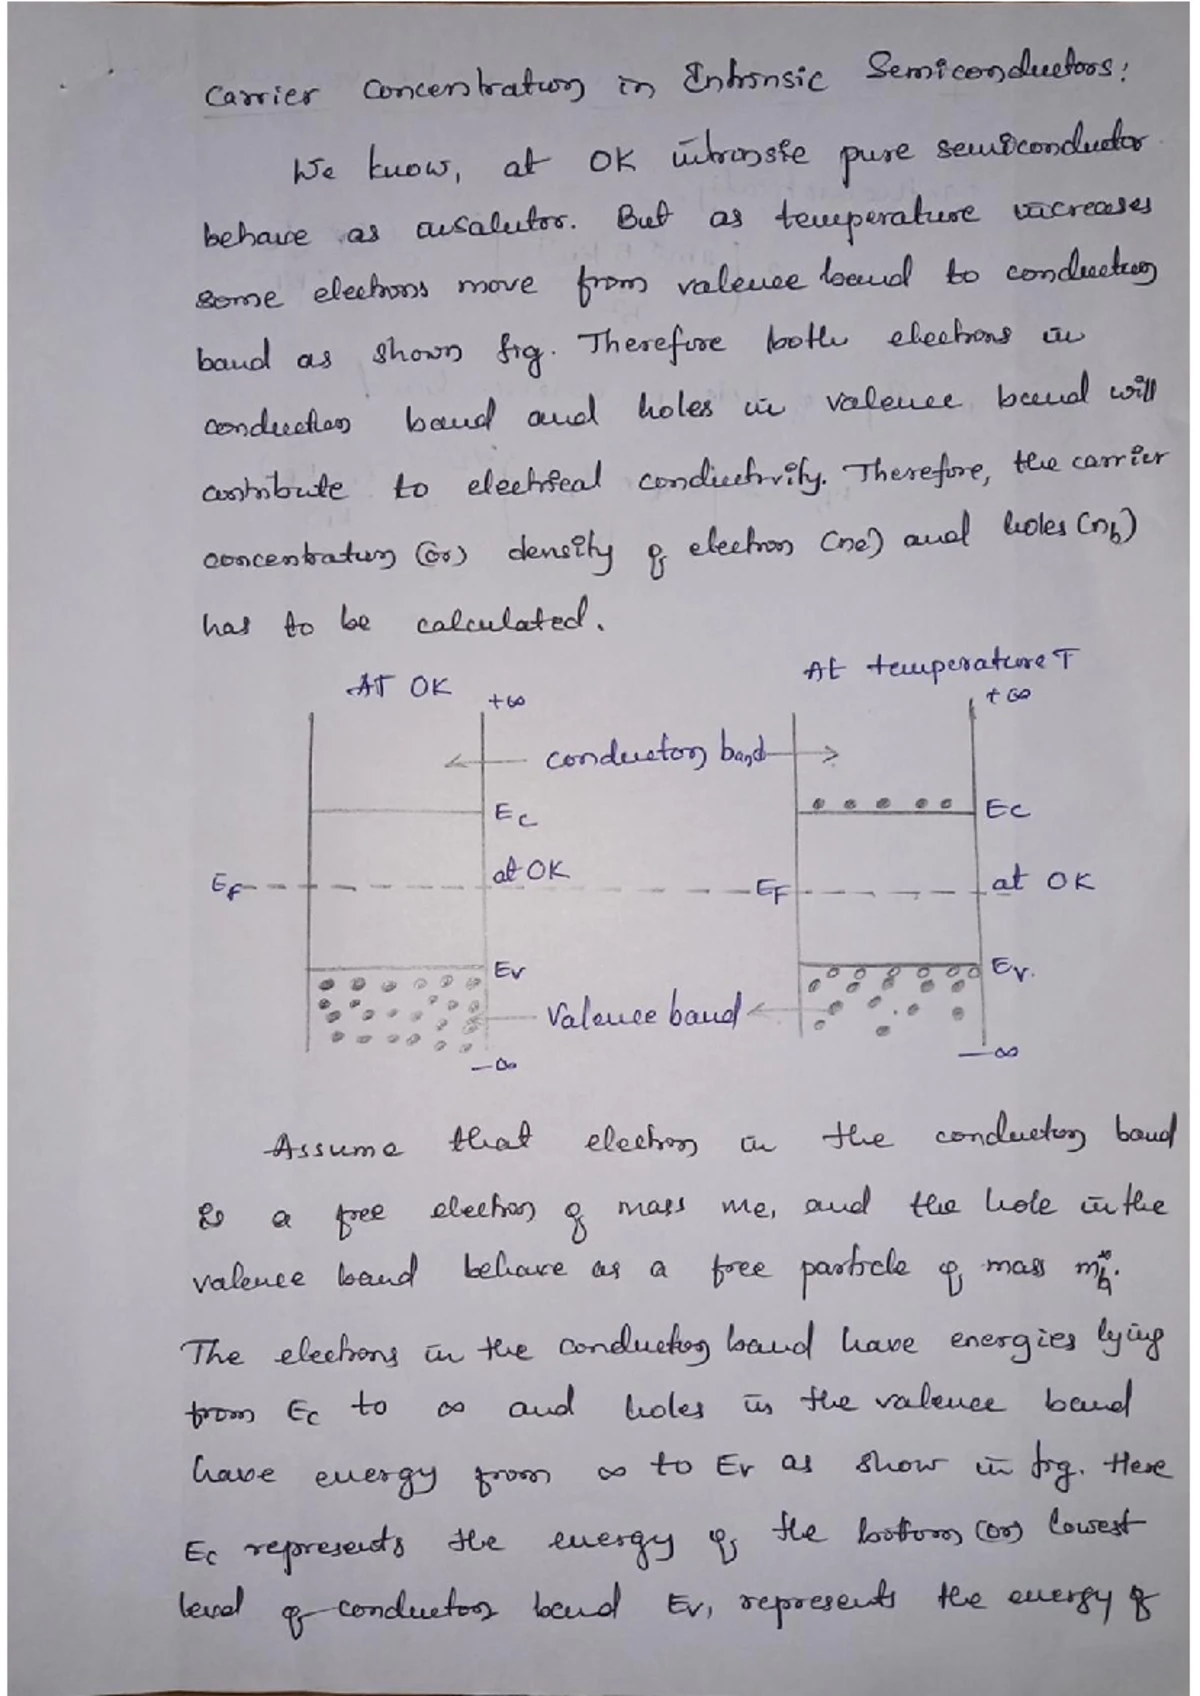 Carrier Concentration in Intrinsic Semiconductors:
We know, at OK intrinsic pure semiconductor
behave as insalutor. But as temperature increases
some electrons move from valence band to conduction
band as shown fig. Therefore both electrons in
conduction band and holes in valence band will
contribute to electrical conductivity. Therefore, the carrier
concentration (or) density of electron (ne) and holes (nh)
has to be calculated.
AT OK
At temperature T
+∞
+∞
conduction band
Ec
Ec
at OK
at OK
EF
EF
Ev
Ev.
Valence band
-∞
-∞
Assume that electron in the conduction band
is a free electron of mass me, and the hole in the
valence band behave as a free particle of mass m*h.
The electrons in the conduction band have energies lying
from Ec to ∞ and holes in the valence band
have energy from ∞ to Ev as show in fig. Here
Ec represents the energy of the bottom (or) lowest
level of conduction band Ev, represents the energy of